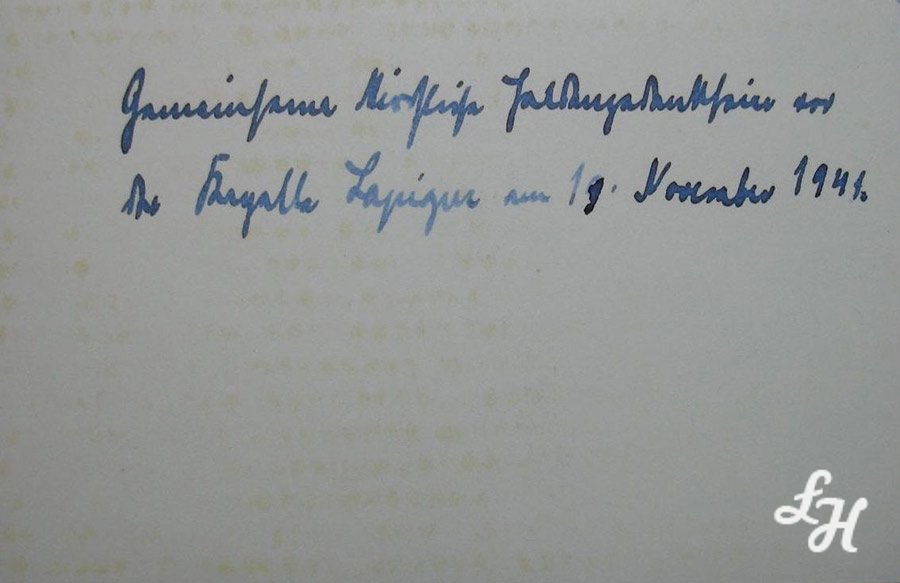 Gemeinsame kirchliche Heldengedenkfeier vor
der Kapelle am 19. November 1941.
LH